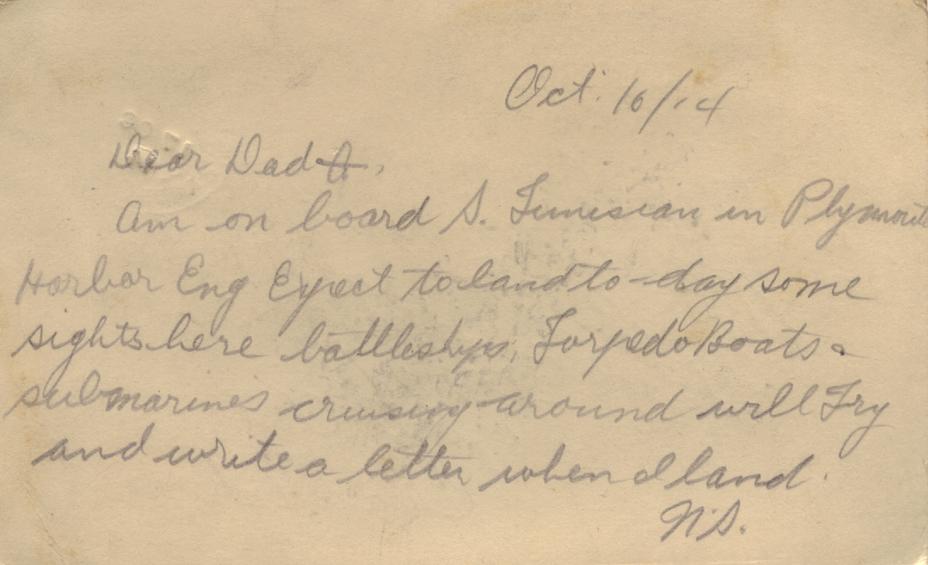 Oct. 16/14
Dear Dad
Am on board S. Tunisian in Plymouth
Harbor Eng Expect to land to-day some
sights here battleships, Torpedo Boats &
submarines cruising around will Try
and write a letter when I land.
N.S.